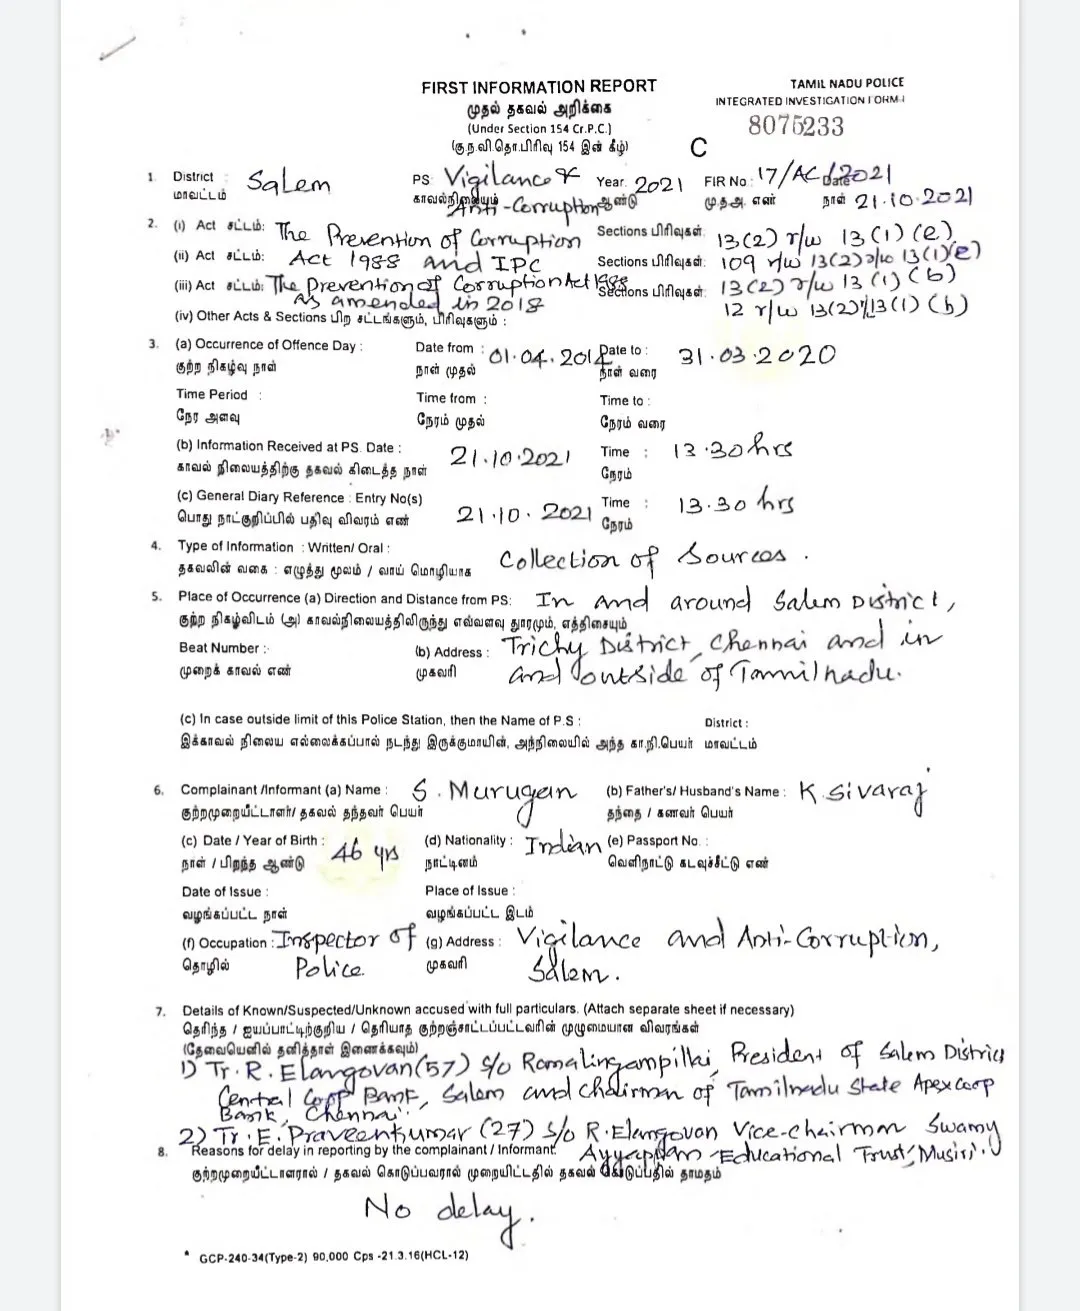 FIRST INFORMATION REPORT
TAMIL NADU POLICE
முதல் தகவல் அறிக்கை
INTEGRATED INVESTIGATION FORM-I
(Under Section 154 Cr.P.C.)
8075233
(கு.ந.வி.தொ.பிரிவு 154 இன் கீழ்)
C
1. District : Salem PS: Vigilance & Year: 2021 FIR No: 17/AC/2021 Date
மாவட்டம் காவல்நிலையம் Anti-Corruption ஆண்டு மு.த.அ. எண் நாள் 21.10.2021
2. (i) Act சட்டம்: The Prevention of Corruption Sections பிரிவுகள்: 13(2) r/w 13(1)(e)
(ii) Act சட்டம்: Act 1988 and IPC Sections பிரிவுகள்: 109 r/w 13(2) r/w 13(1)(e)
(iii) Act சட்டம்: The Prevention of Corruption Act 1988 Sections பிரிவுகள்: 13(2) r/w 13(1)(b)
As amended in 2018 12 r/w 13(2) r/w 13(1)(b)
(iv) Other Acts & Sections பிற சட்டங்களும், பிரிவுகளும் :
3. (a) Occurrence of Offence Day : Date from : 01.04.2014 Date to : 31.03.2020
குற்ற நிகழ்வு நாள் நாள் முதல் நாள் வரை
Time Period : Time from : Time to :
நேர அளவு நேரம் முதல் நேரம் வரை
(b) Information Received at PS. Date : 21.10.2021 Time : 13.30 hrs
காவல் நிலையத்திற்கு தகவல் கிடைத்த நாள் நேரம்
(c) General Diary Reference : Entry No(s) 21.10.2021 Time : 13.30 hrs
பொது நாட்குறிப்பில் பதிவு விவரம் எண் நேரம்
4. Type of Information : Written/ Oral : Collection of Sources.
தகவலின் வகை : எழுத்து மூலம் / வாய் மொழியாக
5. Place of Occurrence (a) Direction and Distance from PS: In and around Salem District,
குற்ற நிகழ்விடம் (அ) காவல்நிலையத்திலிருந்து எவ்வளவு தூரமும், எத்திசையும்
Beat Number : (b) Address : Trichy District, Chennai and in
முறைக் காவல் எண் முகவரி and outside of Tamilnadu.
(c) In case outside limit of this Police Station, then the Name of P.S : District :
இக்காவல் நிலைய எல்லைக்கப்பால் நடந்து இருக்குமாயின், அந்நிலையில் அந்த கா.நி.பெயர் மாவட்டம்
6. Complainant /Informant (a) Name : S. Murugan (b) Father's/ Husband's Name : K. Sivaraj
குற்றமுறையீட்டாளர்/ தகவல் தந்தவர் பெயர் தந்தை / கணவர் பெயர்
(c) Date / Year of Birth : 46 yrs (d) Nationality : Indian (e) Passport No. :
நாள் / பிறந்த ஆண்டு நாட்டினம் வெளிநாட்டு கடவுச்சீட்டு எண்
Date of Issue : Place of Issue :
வழங்கப்பட்ட நாள் வழங்கப்பட்ட இடம்
(f) Occupation : Inspector of (g) Address : Vigilance and Anti-Corruption,
தொழில் Police முகவரி Salem.
7. Details of Known/Suspected/Unknown accused with full particulars. (Attach separate sheet if necessary)
தெரிந்த / ஐயப்பாட்டிற்குறிய / தெரியாத குற்றஞ்சாட்டப்பட்டவரின் முழுமையான விவரங்கள்
(தேவையெனில் தனித்தாள் இணைக்கவும்)
1) Tr. R. Elangovan (57) S/o Ramalingampillai, President of Salem District
Central Coop Bank, Salem and Chairman of Tamilnadu State Apex Coop
Bank, Chennai.
2) Tr. E. Praveenkumar (27) S/o R. Elangovan Vice-Chairman Swamy
8. Reasons for delay in reporting by the complainant / Informant: Ayyappan Educational Trust, Musiri.
குற்றமுறையீட்டாளரால் / தகவல் கொடுப்பவரால் முறையிட்டதில் தகவல் கொடுப்பதில் தாமதம்
No delay.
* GCP-240-34(Type-2) 90,000 Cps -21.3.16(HCL-12)